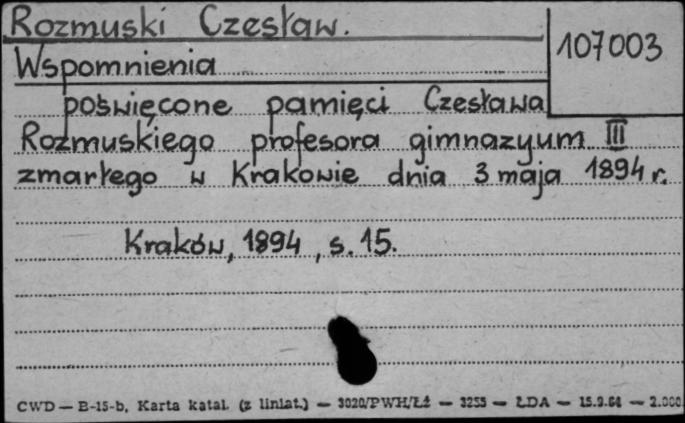 Rozmuski Czesław.
107003
Wspomnienia
poświęcone pamięci Czesława
Rozmuskiego profesora gimnazyum III
zmarłego w Krakowie dnia 3 maja 1894 r.
Kraków, 1894, s. 15.
CWD — B-15-b, Karta katal. (z liniat.) — 3020/PWH/Łż — 3255 — ŁDA — 15.9.64 — 2.000.